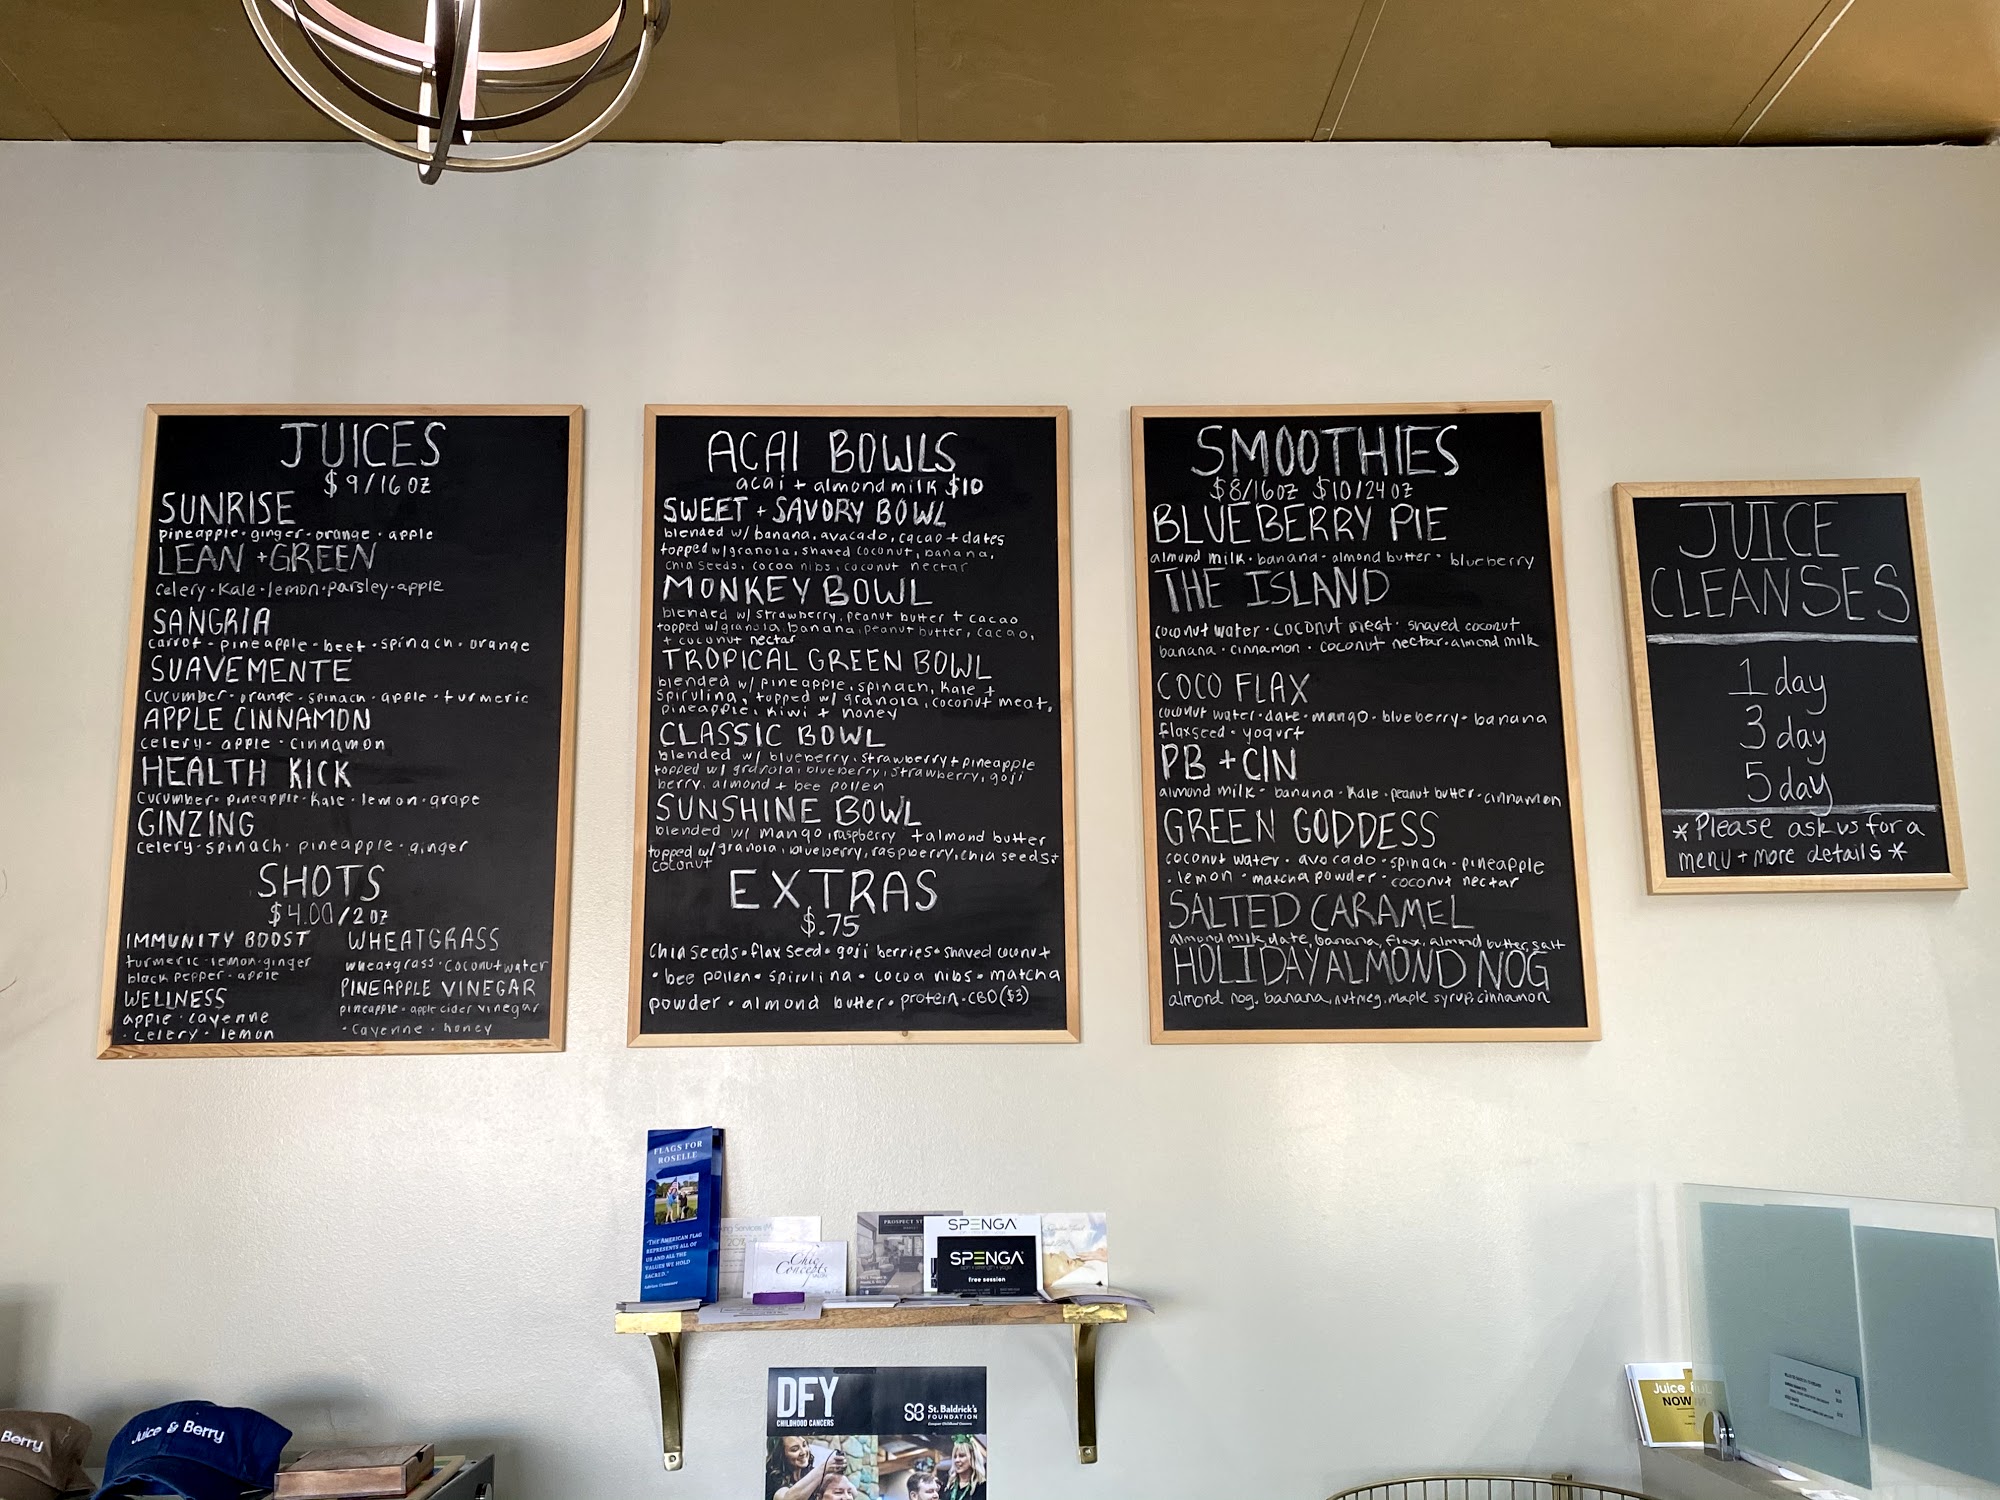 JUICES
$9/16 OZ
SUNRISE
pineapple · ginger · orange · apple
LEAN + GREEN
celery · Kale · lemon · parsley · apple
SANGRIA
carrot - pineapple - beet · spinach · orange
SUAVEMENTE
cucumber · orange · spinach · apple · turmeric
APPLE CINNAMON
celery · apple · cinnamon
HEALTH KICK
cucumber · pineapple · kale · lemon · grape
GINZING
celery · spinach · pineapple · ginger
SHOTS
$4.00/2 OZ
IMMUNITY BOOST
turmeric · lemon · ginger
black pepper · apple
WELLNESS
apple · cayenne
· celery · lemon
WHEATGRASS
wheatgrass · coconut water
PINEAPPLE VINEGAR
pineapple · apple cider vinegar
· cayenne · honey
ACAI BOWLS
acai + almond milk $10
SWEET + SAVORY BOWL
blended w/ banana, avacado, cacao + dates
topped w/ granola, shaved coconut, banana,
chia seeds, cocoa nibs, coconut nectar
MONKEY BOWL
blended w/ strawberry, peanut butter + cacao
topped w/ granola, banana, peanut butter, cacao,
+ coconut nectar
TROPICAL GREEN BOWL
blended w/ pineapple, spinach, kale +
spirulina, topped w/ granola, coconut meat,
pineapple, kiwi + honey
CLASSIC BOWL
blended w/ blueberry, strawberry + pineapple
topped w/ granola, blueberry, strawberry, goji
berry, almond + bee pollen
SUNSHINE BOWL
blended w/ mango, raspberry + almond butter
topped w/ granola, blueberry, raspberry, chia seeds +
coconut
EXTRAS
$.75
chia seeds · flax seed · goji berries · shaved coconut
· bee pollen · spirulina · cocoa nibs · matcha
powder · almond butter · protein · CBD ($3)
SMOOTHIES
$8/16oz $10/24oz
BLUEBERRY PIE
almond milk · banana · almond butter · blueberry
THE ISLAND
coconut water · coconut meat · shaved coconut
banana · cinnamon · coconut nectar · almond milk
COCO FLAX
coconut water · date · mango · blueberry · banana
flaxseed · yogurt
PB + CIN
almond milk · banana · kale · peanut butter · cinnamon
GREEN GODDESS
coconut water · avocado · spinach · pineapple
· lemon · matcha powder · coconut nectar
SALTED CARAMEL
almond milk, date, banana, flax, almond butter, salt
HOLIDAY ALMOND NOG
almond nog, banana, nutmeg, maple syrup, cinnamon
JUICE
CLEANSES
1 day
3 day
5 day
* Please ask us for a
menu + more details *
FLAGS FOR
ROSELLE
"THE AMERICAN FLAG
REPRESENTS ALL OF
US AND ALL THE
VALUES WE HOLD
SACRED."
Chic
Concepts
SALON
PROSPECT
SPENGA
SPENGA
free session
DFY
CHILDHOOD CANCERS
St. Baldrick's
FOUNDATION
Berry
Juice & Berry
Juice
NOW